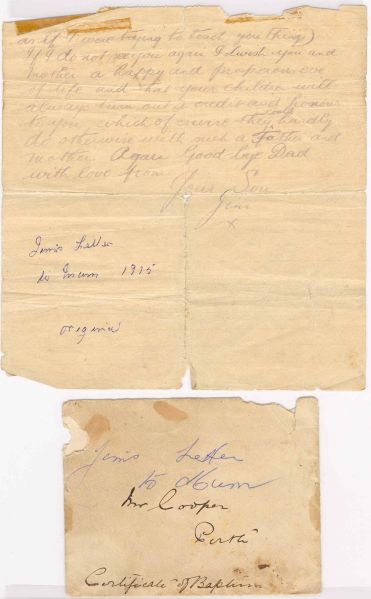 as if I were trying to teach you thing)
If I do not see you again I wish you and
Mother a happy and prosperous eve
of life and that your children will
always turn out a credit and honour
to you, which of course they could hardly
do otherwise with such a Father and
Mother. Again Good bye Dad
with love from
Your Son
Jim
x
Jim's Letter
to Mum 1915
original
Jim's Letter
to Mum
Mr Cooper
Perth
Certificate of Baptism